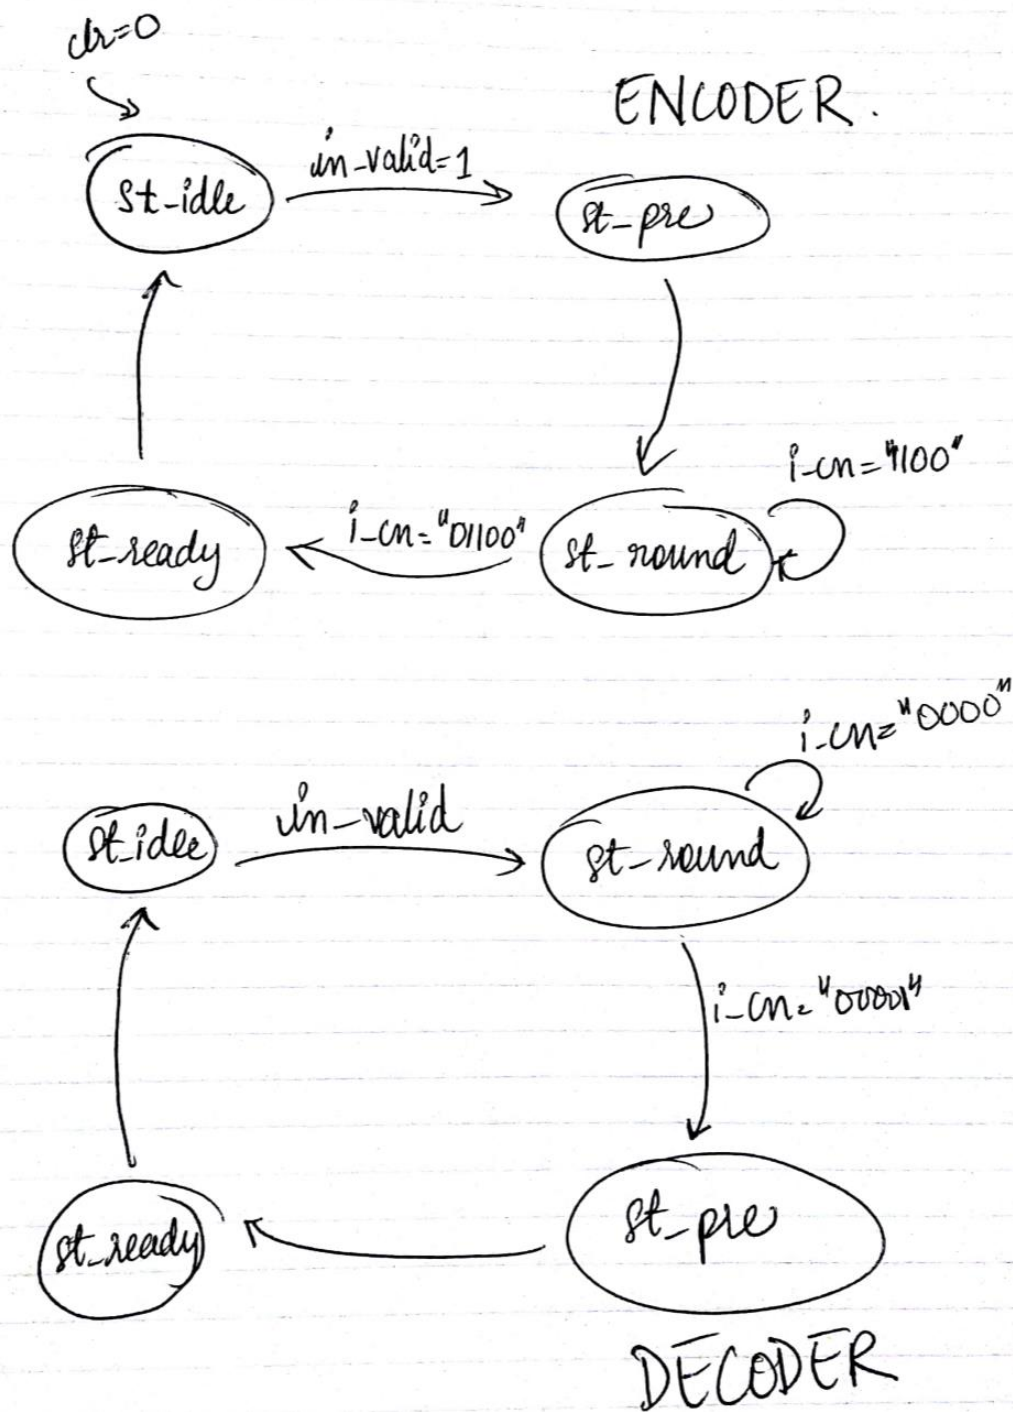 clr=0
ENCODER.
in-valid=1
st-idle
st-pre
i-cn="1100"
st-ready
i-cn="01100"
st-round
i-cn="0000"
st-idle
in-valid
st-round
i-cn="00001"
st-pre
st-ready
DECODER